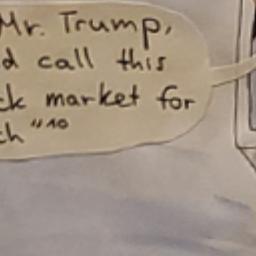 Mr. Trump,
d call this
ck market for
ch "10